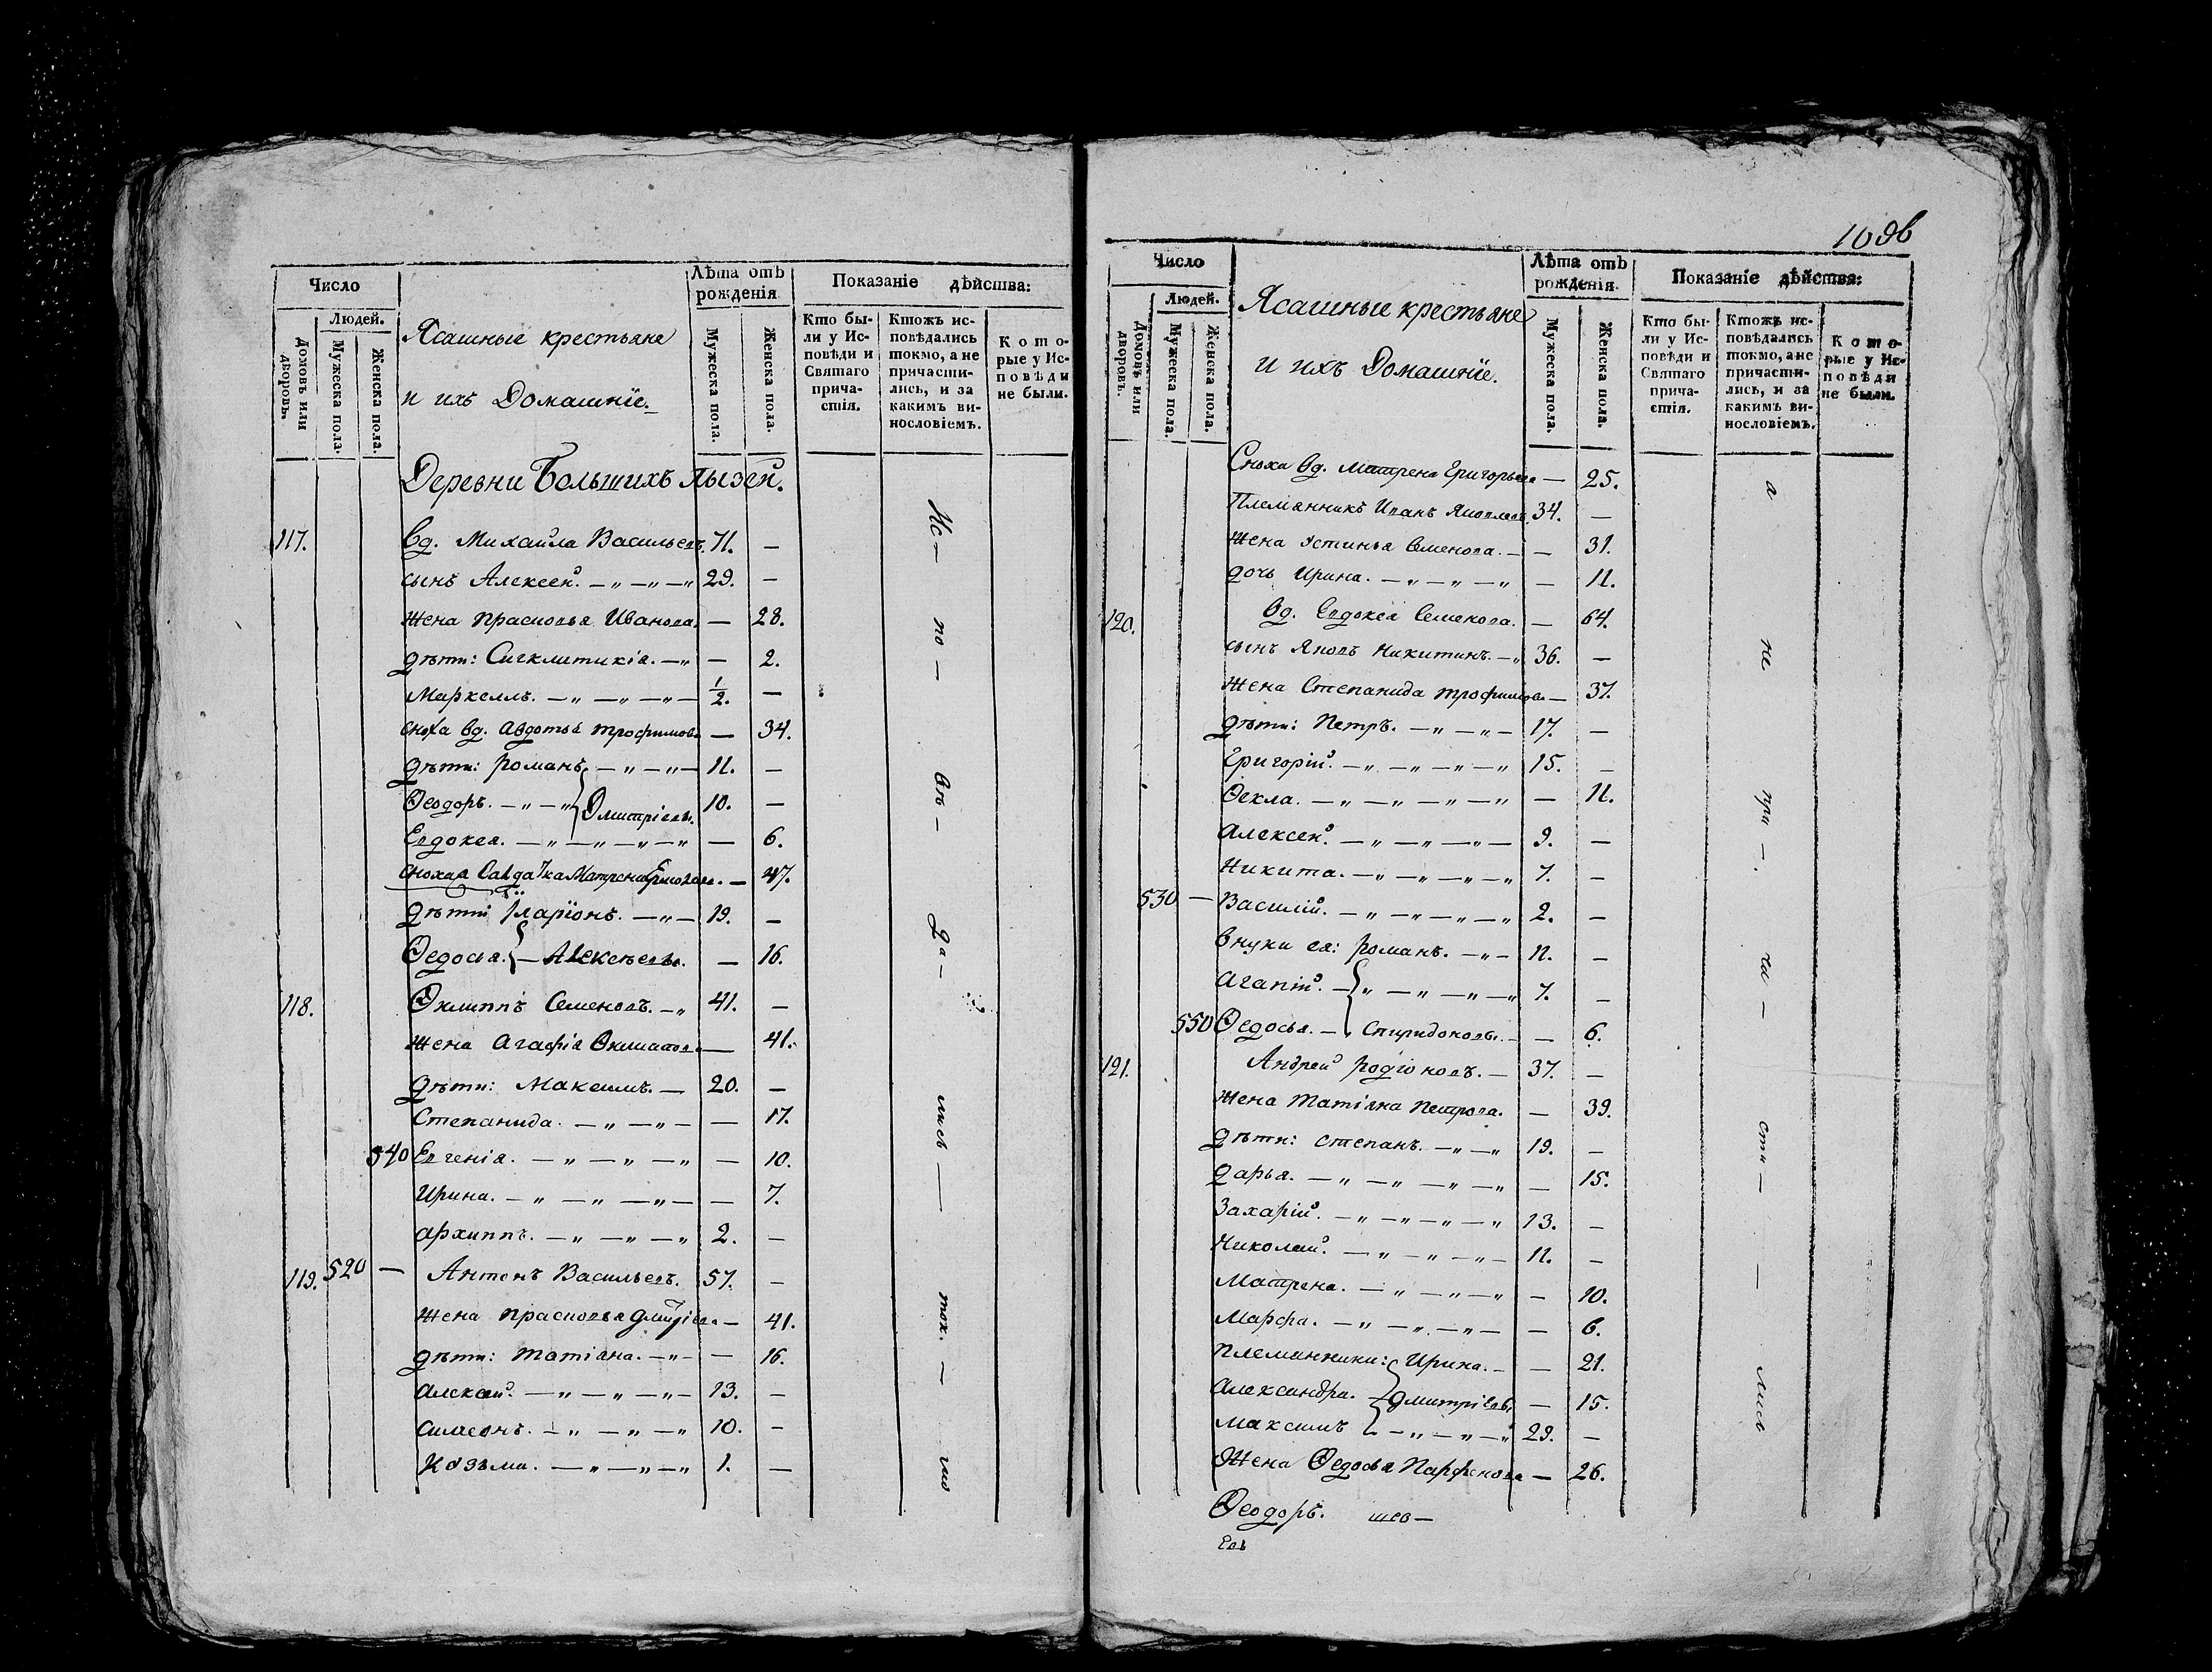 Число
Людей.
Домовъ или дворовъ.
Мужеска пола.
Женска пола.
Ясашные крестьяне
и ихъ Домашніе.
Лѣта отъ рожденія
Мужеска пола.
Женска пола.
Показаніе дѣйства:
Кто бы-
ли у Ис-
повѣди и
Святаго
прича-
стія.
Ктожъ ис-
повѣдались
токмо, а не
причасти-
лись, и за
какимъ ви-
нословіемъ.
Кото-
рые у Ис-
повѣди
не были.
Деревни Большихъ Лызей.
117. Вд. Михайла Васильевъ. 71. —
сынъ Алексей. — „ — „ — „ 29. —
жена Прасковья Иванова. — 28.
дѣти: Сигклитикіа. — „ — 2.
Маркеллъ. — „ — „ — „ — 1/2. —
сноха вд. Авдотья Трофимова — 34.
дѣти: Романъ. — „ — „ — 11. —
Ѳеодоръ. — „ — „ Дмитріевы. 10. —
Евдокеа. — „ — „ — „ — „ — 6.
сноха Салдатка Матрена Ермолаева. — 47.
дѣти Іларіонъ. — „ — 19. —
Ѳедосья. — Алексѣевы. — 16.
118. Ѳилиппъ Семеновъ. — „ 41. —
жена Агафіа — 41.
дѣти: Максимъ. — 20. —
Степанида. — „ — „ — — 17.
540 Евгеніа. — „ — „ — „ — 10.
Ирина. — „ — „ — „ — — 7.
Архиппъ. — „ — „ — „ 2. —
119. 520 — Антонъ Васильевъ. 57. —
жена Прасковья Дмитріева — 41.
дѣти: Татіана. — „ — — 16.
Алексей. — „ — „ — „ — 13. —
Симеонъ. — „ — „ — „ 10. —
Козьма. — „ — „ — „ 1. —
Ис — по — вѣ — да — лись — ток. — мо
1096
Число
Людей.
Домовъ или дворовъ.
Мужеска пола.
Женска пола.
Ясашные крестьяне
и ихъ Домашніе.
Лѣта отъ рожденія.
Мужеска пола.
Женска пола.
Показаніе дѣйства:
Кто бы-
ли у Ис-
повѣди и
Святаго
прича-
стія.
Ктожъ ис-
повѣдались
токмо, а не
причасти-
лись, и за
какимъ ви-
нословіемъ.
Кото-
рые у Ис-
повѣди
не были.
Сноха вд. Матрена Григорьева — 25.
Племянникъ Иванъ Яковлевъ. 34. —
жена Устинья Семенова. — — 31.
дочь Ирина. — „ — „ — „ — 11.
120. Вд. Евдокеа Семенова. — 64.
сынъ Яковъ Никитинъ. — „ 36. —
жена Степанида Трофимова — 37.
дѣти: Петръ. — „ — „ — 17. —
Григорій. — „ — „ — „ — „ 15. —
Ѳекла. — „ — „ — „ — „ — 11.
Алексей. — „ — „ — „ — 9. —
Никита. — „ — „ — „ — „ 7. —
530 — Василій. — „ — „ — „ — „ 2. —
внуки ея: Романъ. — „ — 11. —
Агапій. — „ — „ — „ — „ 7. —
550 Ѳедосья. — Спиридоновы. — — 6.
121. Андрей Родіоновъ. — 37. —
жена Татіана Петрова. — 39.
дѣти: Степанъ. — „ — „ 19. —
Дарья. — „ — „ — „ — „ — 15.
Захарій. — „ — „ — „ — „ 13. —
Николай. — „ — „ — „ — 11. —
Матрена. — „ — „ — „ — 10.
Марфа. — „ — „ — „ — — 6.
племянники: Ирина. — — 21.
Александра. Дмитріевы — 15.
Максимъ — „ — „ — „ 29. —
жена Ѳедосья Парфенова — 26.
а не при — ча — сти — — лись
Ѳеодоръ.